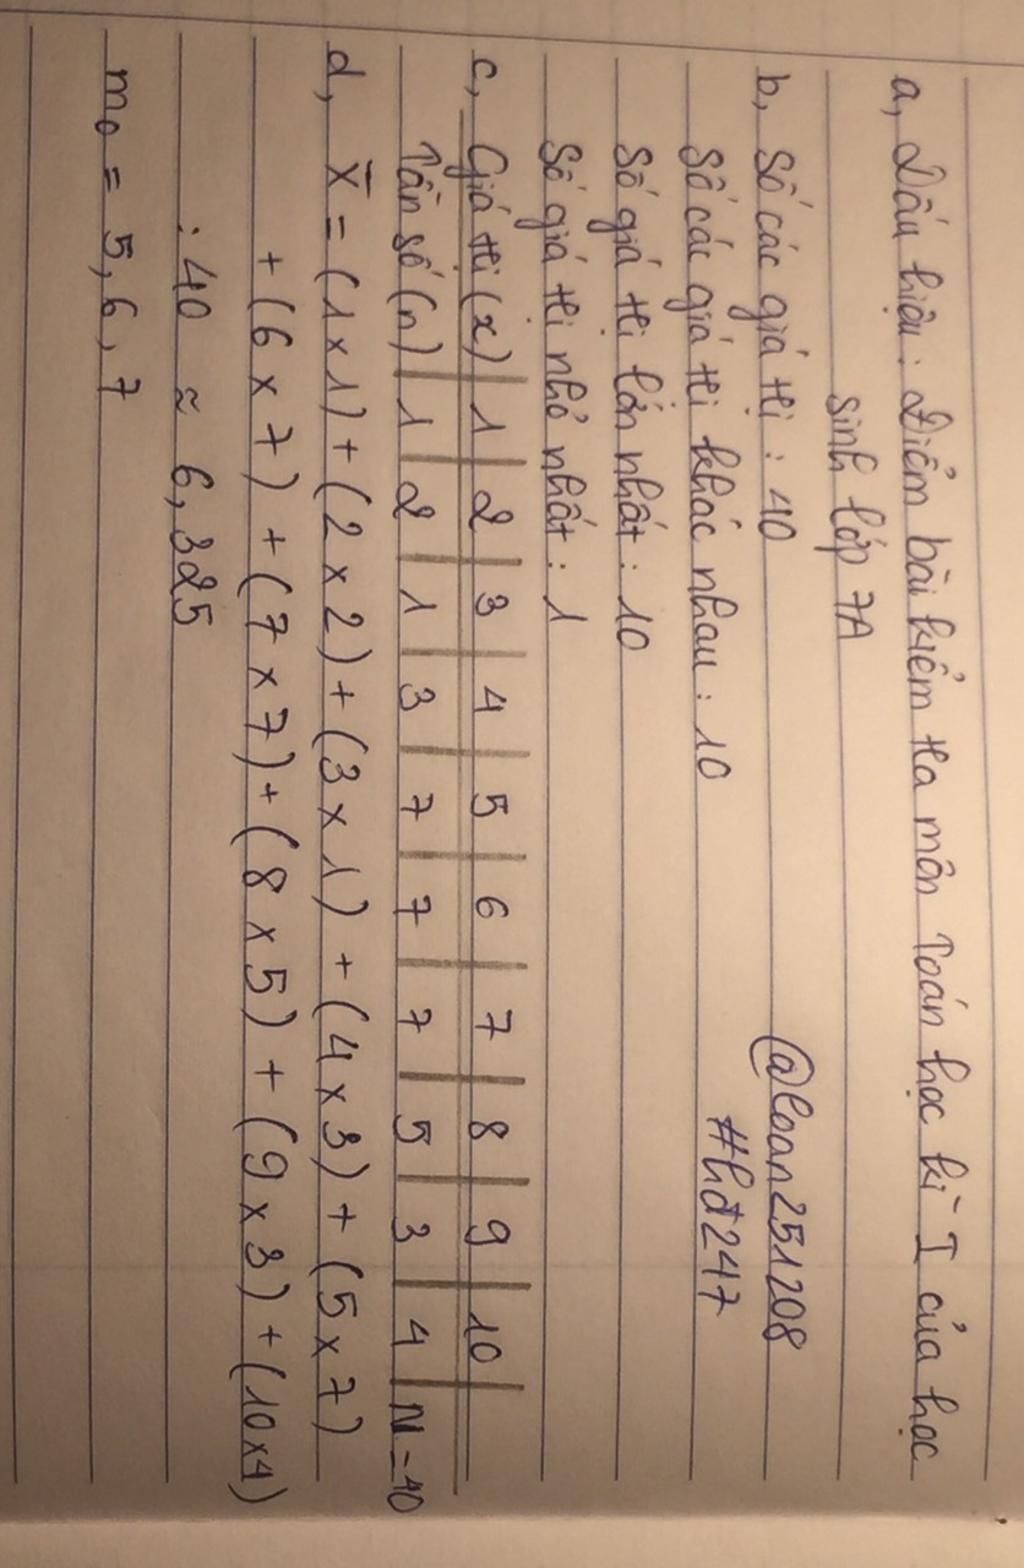 a, Dấu hiệu: Điểm bài kiểm tra môn Toán học kì I của học
sinh lớp 7A
b, Số các giá trị: 40
@loan251208
Số các giá trị khác nhau: 10
#hđ247
Số giá trị lớn nhất: 10
Số giá trị nhỏ nhất: 1
c, Giá trị (x) 1 2 3 4 5 6 7 8 9 10
Tần số (n) 1 2 1 3 7 7 7 5 3 4 N=40
d, X̄ = (1x1) + (2x2) + (3x1) + (4x3) + (5x7)
+ (6x7) + (7x7) + (8x5) + (9x3) + (10x4)
: 40 ≈ 6,325
m₀ = 5, 6, 7